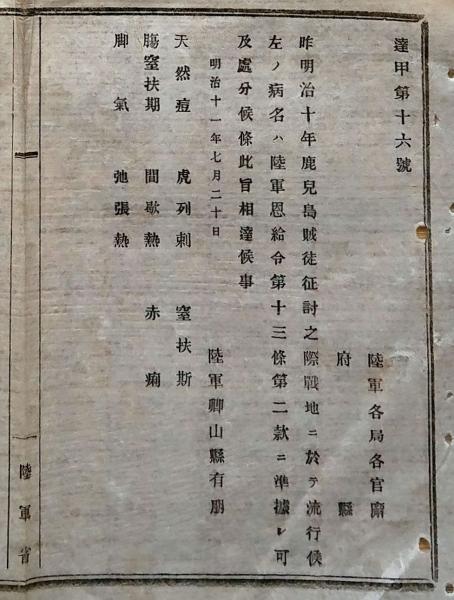 達甲第十六號
陸軍各局各官廨
府　　　縣
昨明治十年鹿兒島賊徒征討之際戰地ニ於テ流行候
左ノ病名ハ陸軍恩給令第十三條第二款ニ準據シ可
及處分候條此旨相達候事
明治十一年七月二十日
陸軍卿山縣有朋
天然痘　虎列刺　窒扶斯
膓窒扶期　間歇熱　赤　痢
脚　氣　弛張熱
陸軍省